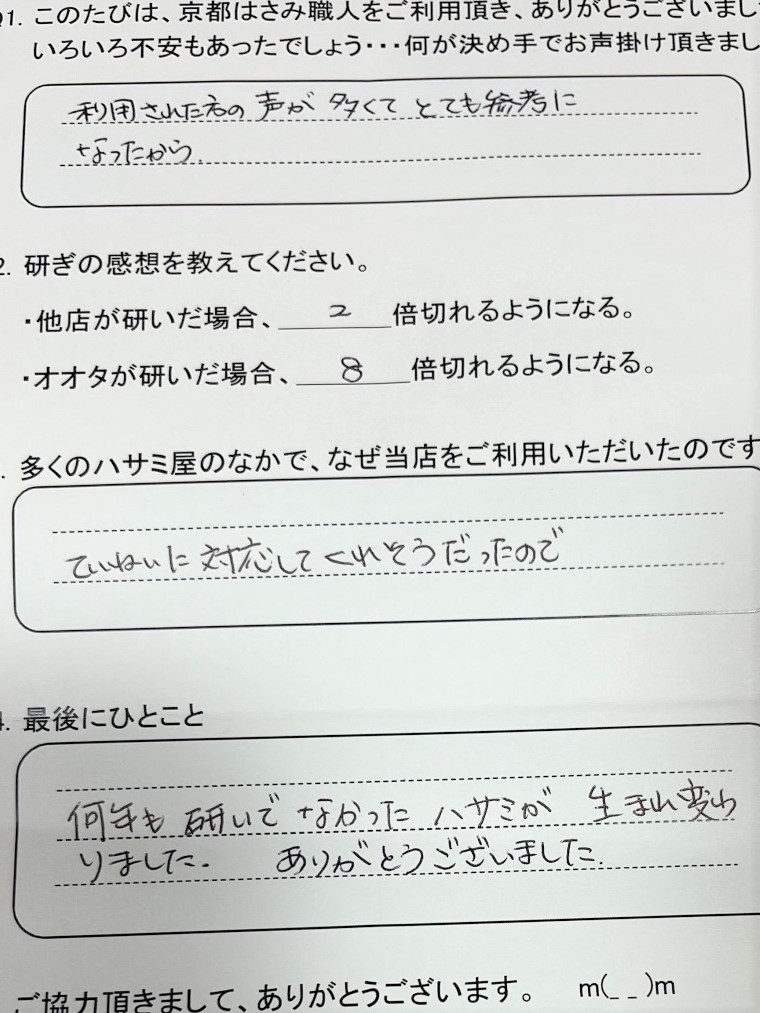 Q1. このたびは、京都はさみ職人をご利用頂き、ありがとうございまし
いろいろ不安もあったでしょう・・・何が決め手でお声掛け頂きまし
利用された方の声が多くてとても参考に
なったから.
2. 研ぎの感想を教えてください。
・他店が研いだ場合、 2 倍切れるようになる。
・オオタが研いだ場合、 8 倍切れるようになる。
. 多くのハサミ屋のなかで、なぜ当店をご利用いただいたのです
ていねいに対応してくれそうだったので
4. 最後にひとこと
何年も研いでなかったハサミが生まれ変わ
りました. ありがとうございました.
ご協力頂きまして、ありがとうございます。 m(_ _)m